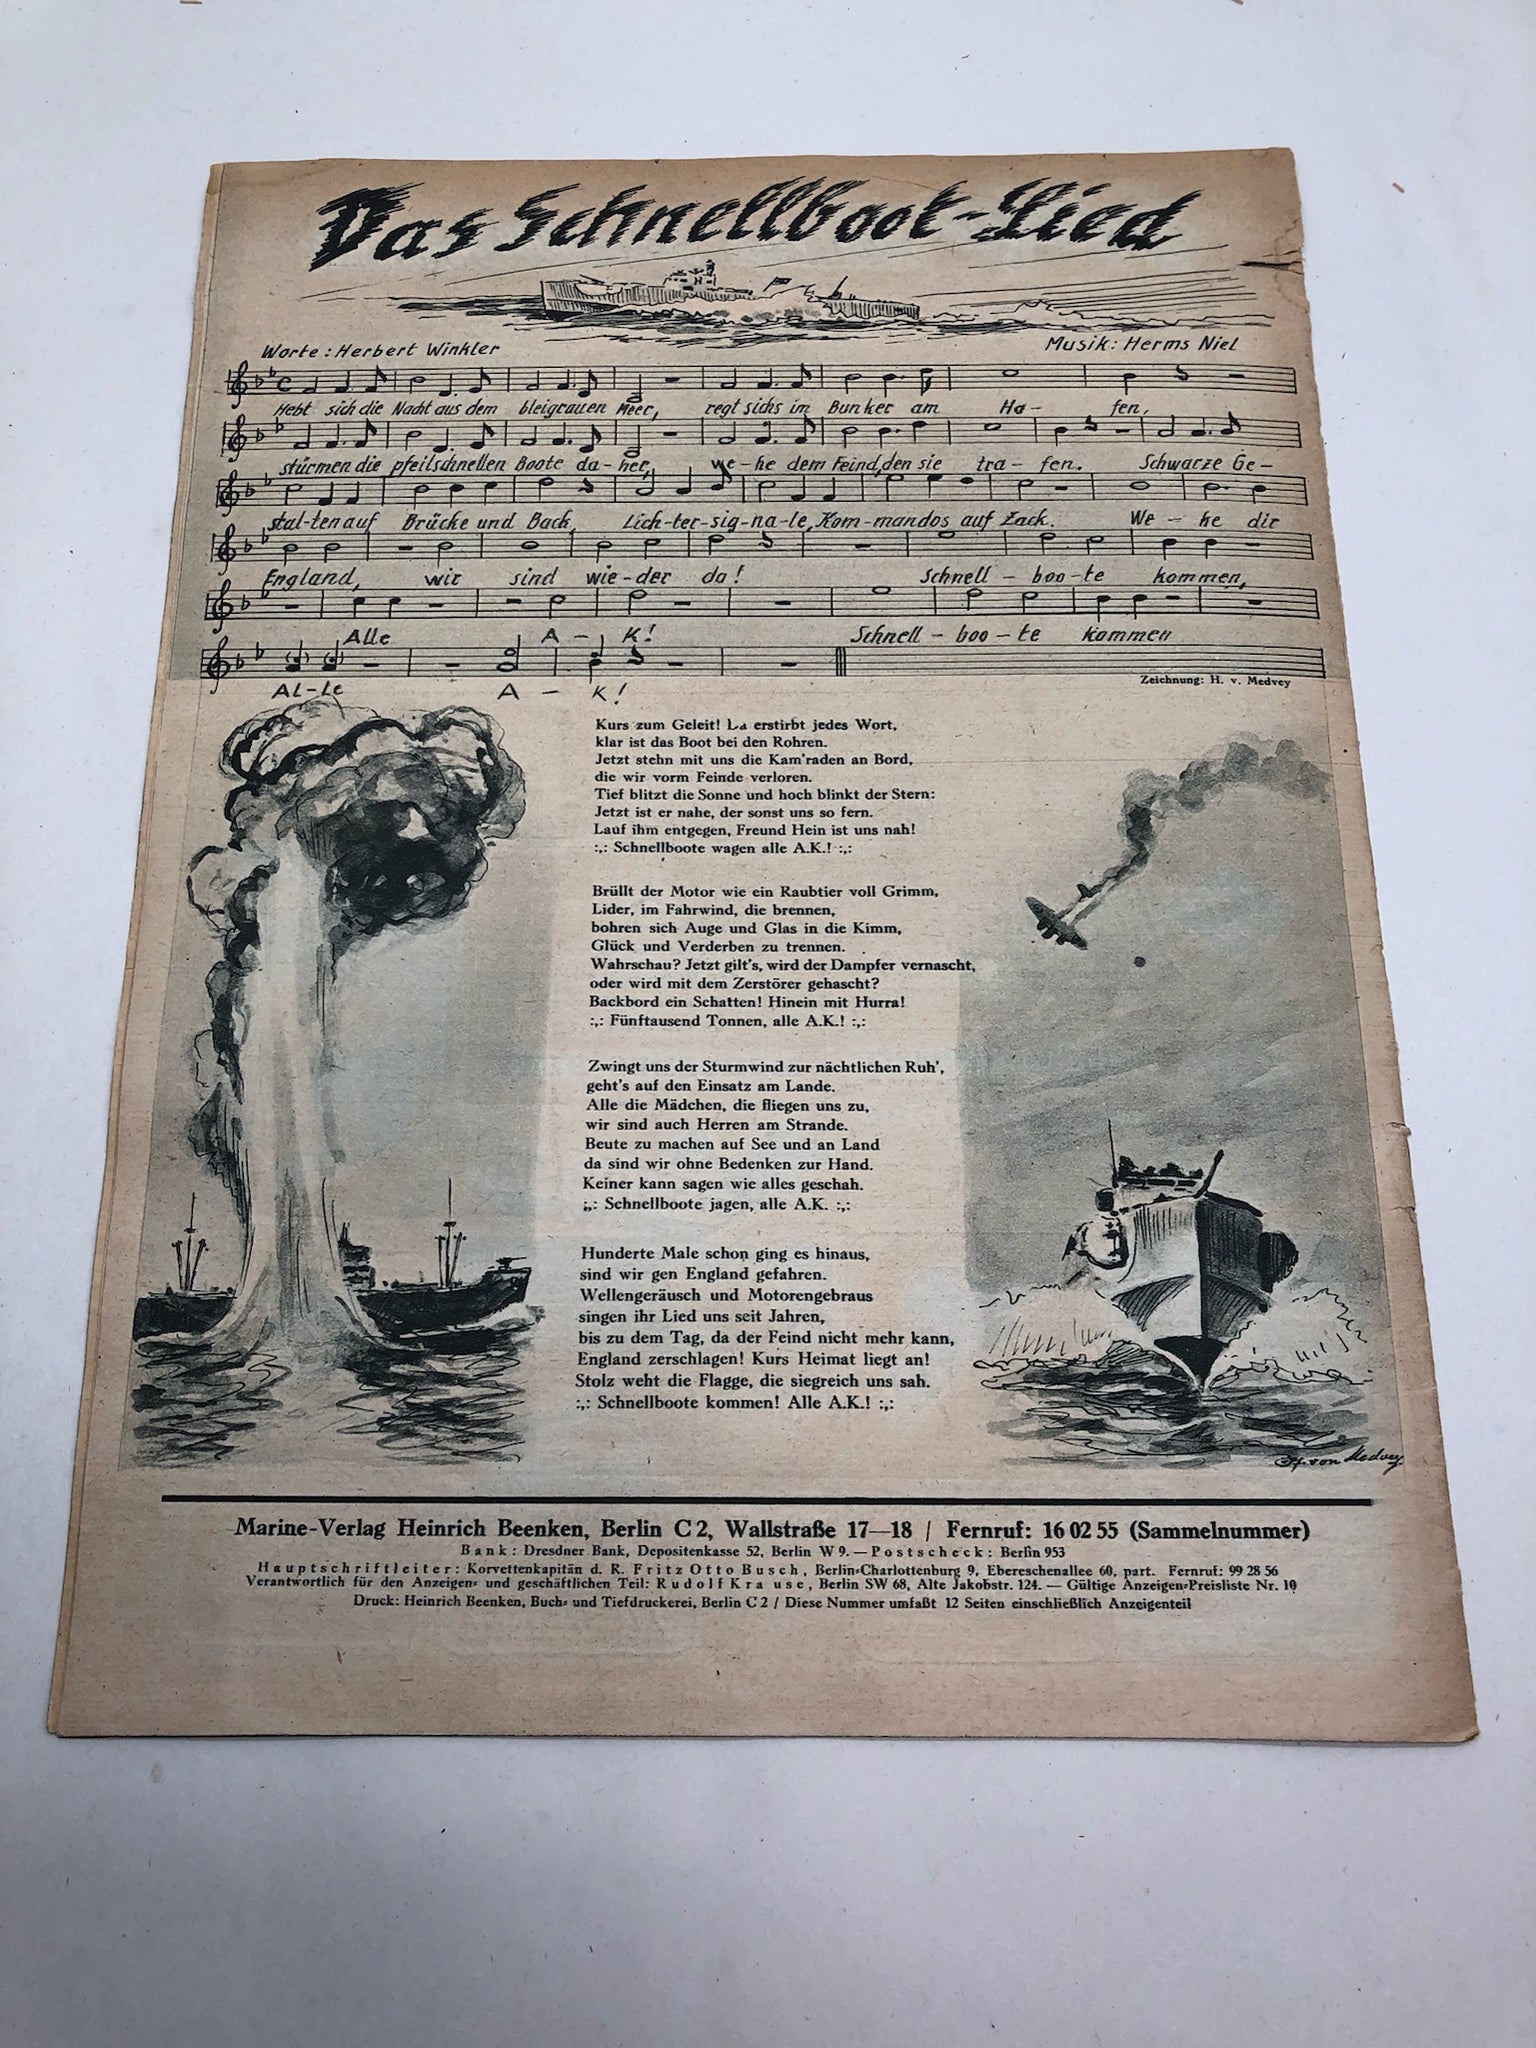 Das Schnellboot-Lied
Worte: Herbert Winkler
Musik: Herms Niel
Hebt sich die Nacht aus dem bleigrauen Meer, regt sichs im Bunker am Ha- fen,
stürmen die pfeilschnellen Boote da-her, we-he dem Feind, den sie tra- fen. Schwarze Ge-
stal-ten auf Brücke und Back, Lich-ter-sig-na-le, Kom-mandos auf Zack. We- he dir
England, wir sind wie-der da! Schnell-boo-te kommen,
Alle A- K! Schnell-boo-te kommen
Al-le A- K!
Zeichnung: H. v. Medvey
Kurs zum Geleit! Da erstirbt jedes Wort,
klar ist das Boot bei den Rohren.
Jetzt stehn mit uns die Kam'raden an Bord,
die wir vorm Feinde verloren.
Tief blitzt die Sonne und hoch blinkt der Stern:
Jetzt ist er nahe, der sonst uns so fern.
Lauf ihm entgegen, Freund Hein ist uns nah!
:,: Schnellboote wagen alle A.K.! :,:
Brüllt der Motor wie ein Raubtier voll Grimm,
Lider, im Fahrwind, die brennen,
bohren sich Auge und Glas in die Kimm,
Glück und Verderben zu trennen.
Wahrschau? Jetzt gilt's, wird der Dampfer vernascht,
oder wird mit dem Zerstörer gehascht?
Backbord ein Schatten! Hinein mit Hurra!
:,: Fünftausend Tonnen, alle A.K.! :,:
Zwingt uns der Sturmwind zur nächtlichen Ruh',
geht's auf den Einsatz am Lande.
Alle die Mädchen, die fliegen uns zu,
wir sind auch Herren am Strande.
Beute zu machen auf See und an Land
da sind wir ohne Bedenken zur Hand.
Keiner kann sagen wie alles geschah.
:,: Schnellboote jagen, alle A.K. :,:
Hunderte Male schon ging es hinaus,
sind wir gen England gefahren.
Wellengeräusch und Motorengebraus
singen ihr Lied uns seit Jahren,
bis zu dem Tag, da der Feind nicht mehr kann,
England zerschlagen! Kurs Heimat liegt an!
Stolz weht die Flagge, die siegreich uns sah.
:,: Schnellboote kommen! Alle A.K.! :,:
H. von Medvey
Marine-Verlag Heinrich Beenken, Berlin C 2, Wallstraße 17—18 / Fernruf: 16 02 55 (Sammelnummer)
Bank: Dresdner Bank, Depositenkasse 52, Berlin W 9. — Postscheck: Berlin 953
Hauptschriftleiter: Korvettenkapitän d. R. Fritz Otto Busch, Berlin-Charlottenburg 9, Ebereschenallee 60, part. Fernruf: 99 28 56
Verantwortlich für den Anzeigen- und geschäftlichen Teil: Rudolf Krause, Berlin SW 68, Alte Jakobstr. 124. — Gültige Anzeigen-Preisliste Nr. 10
Druck: Heinrich Beenken, Buch- und Tiefdruckerei, Berlin C 2 / Diese Nummer umfaßt 12 Seiten einschließlich Anzeigenteil